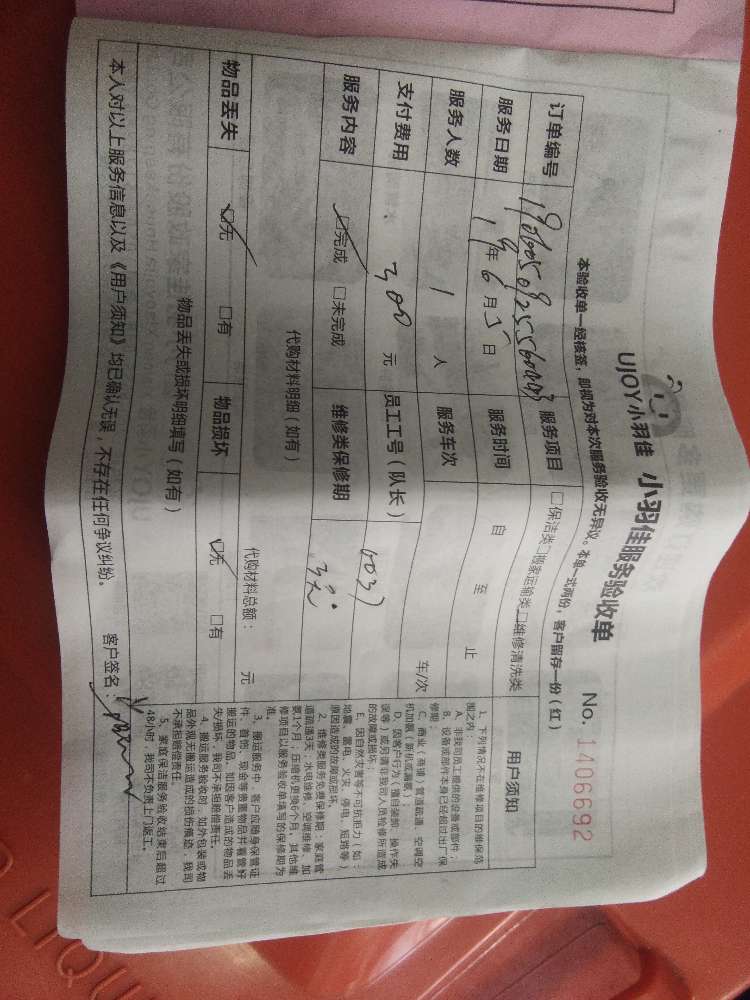 UJOY小羽佳 小羽佳服务验收单
No. 1406692
本验收单一经核签，即视为对本次服务验收无异议。本单一式两份，客户留存一份（红）
订单编号 服务项目 □保洁类□搬家运输类□维修清洗类
服务日期 19年6月5日 服务时间 自 至 止
服务人数 1 人 服务车次 车/次
支付费用 300 元 员工工号（队长） 6037
服务内容 ☑完成 □未完成 维修类保修期 3天
代购材料明细（如有） 代购材料总额： 元
物品丢失 ☑无 □有 物品损坏 ☑无 □有
物品丢失或损坏明细填写（如有）
本人对以上服务信息以及《用户须知》均已确认无误，不存在任何争议纠纷。 客户签名：
用户须知
1、下列情况不在维修项目的维保范
围之内：
A、非我司员工提供的设备或部件；
B、设备或部件本身已经超过出厂保
修期；
C、商业（商铺）管道疏通、空调空
机加氟（新机或漏氟）；
D、因客户行为（擅自装卸、操作失
误等）或另请非我司人员检修所造成
的故障或损坏；
E、因自然灾害等不可抗拒力（如：
地震、雷电、火灾、停电、短路等）
原因造成的故障或损坏。
2、维修类服务免费保修期：家庭管
道疏通3天；水电维修、空调维修、加
氨1个月；压缩机更换6个月，其他维
修项目以服务验收单填写的保修期为
准。
3、搬运服务中，客户应随身保管证
件、首饰、现金等贵重物品并看管好
搬运的物品，如因客户造成的物品丢
失/损坏，我司不承担赔偿责任。
4、搬运服务验收时，如外包装或物
品外观无搬运造成的损伤痕迹，我司
不承担赔偿责任。
5、家庭保洁服务验收结束后超过
48小时，我司不负责上门返工。